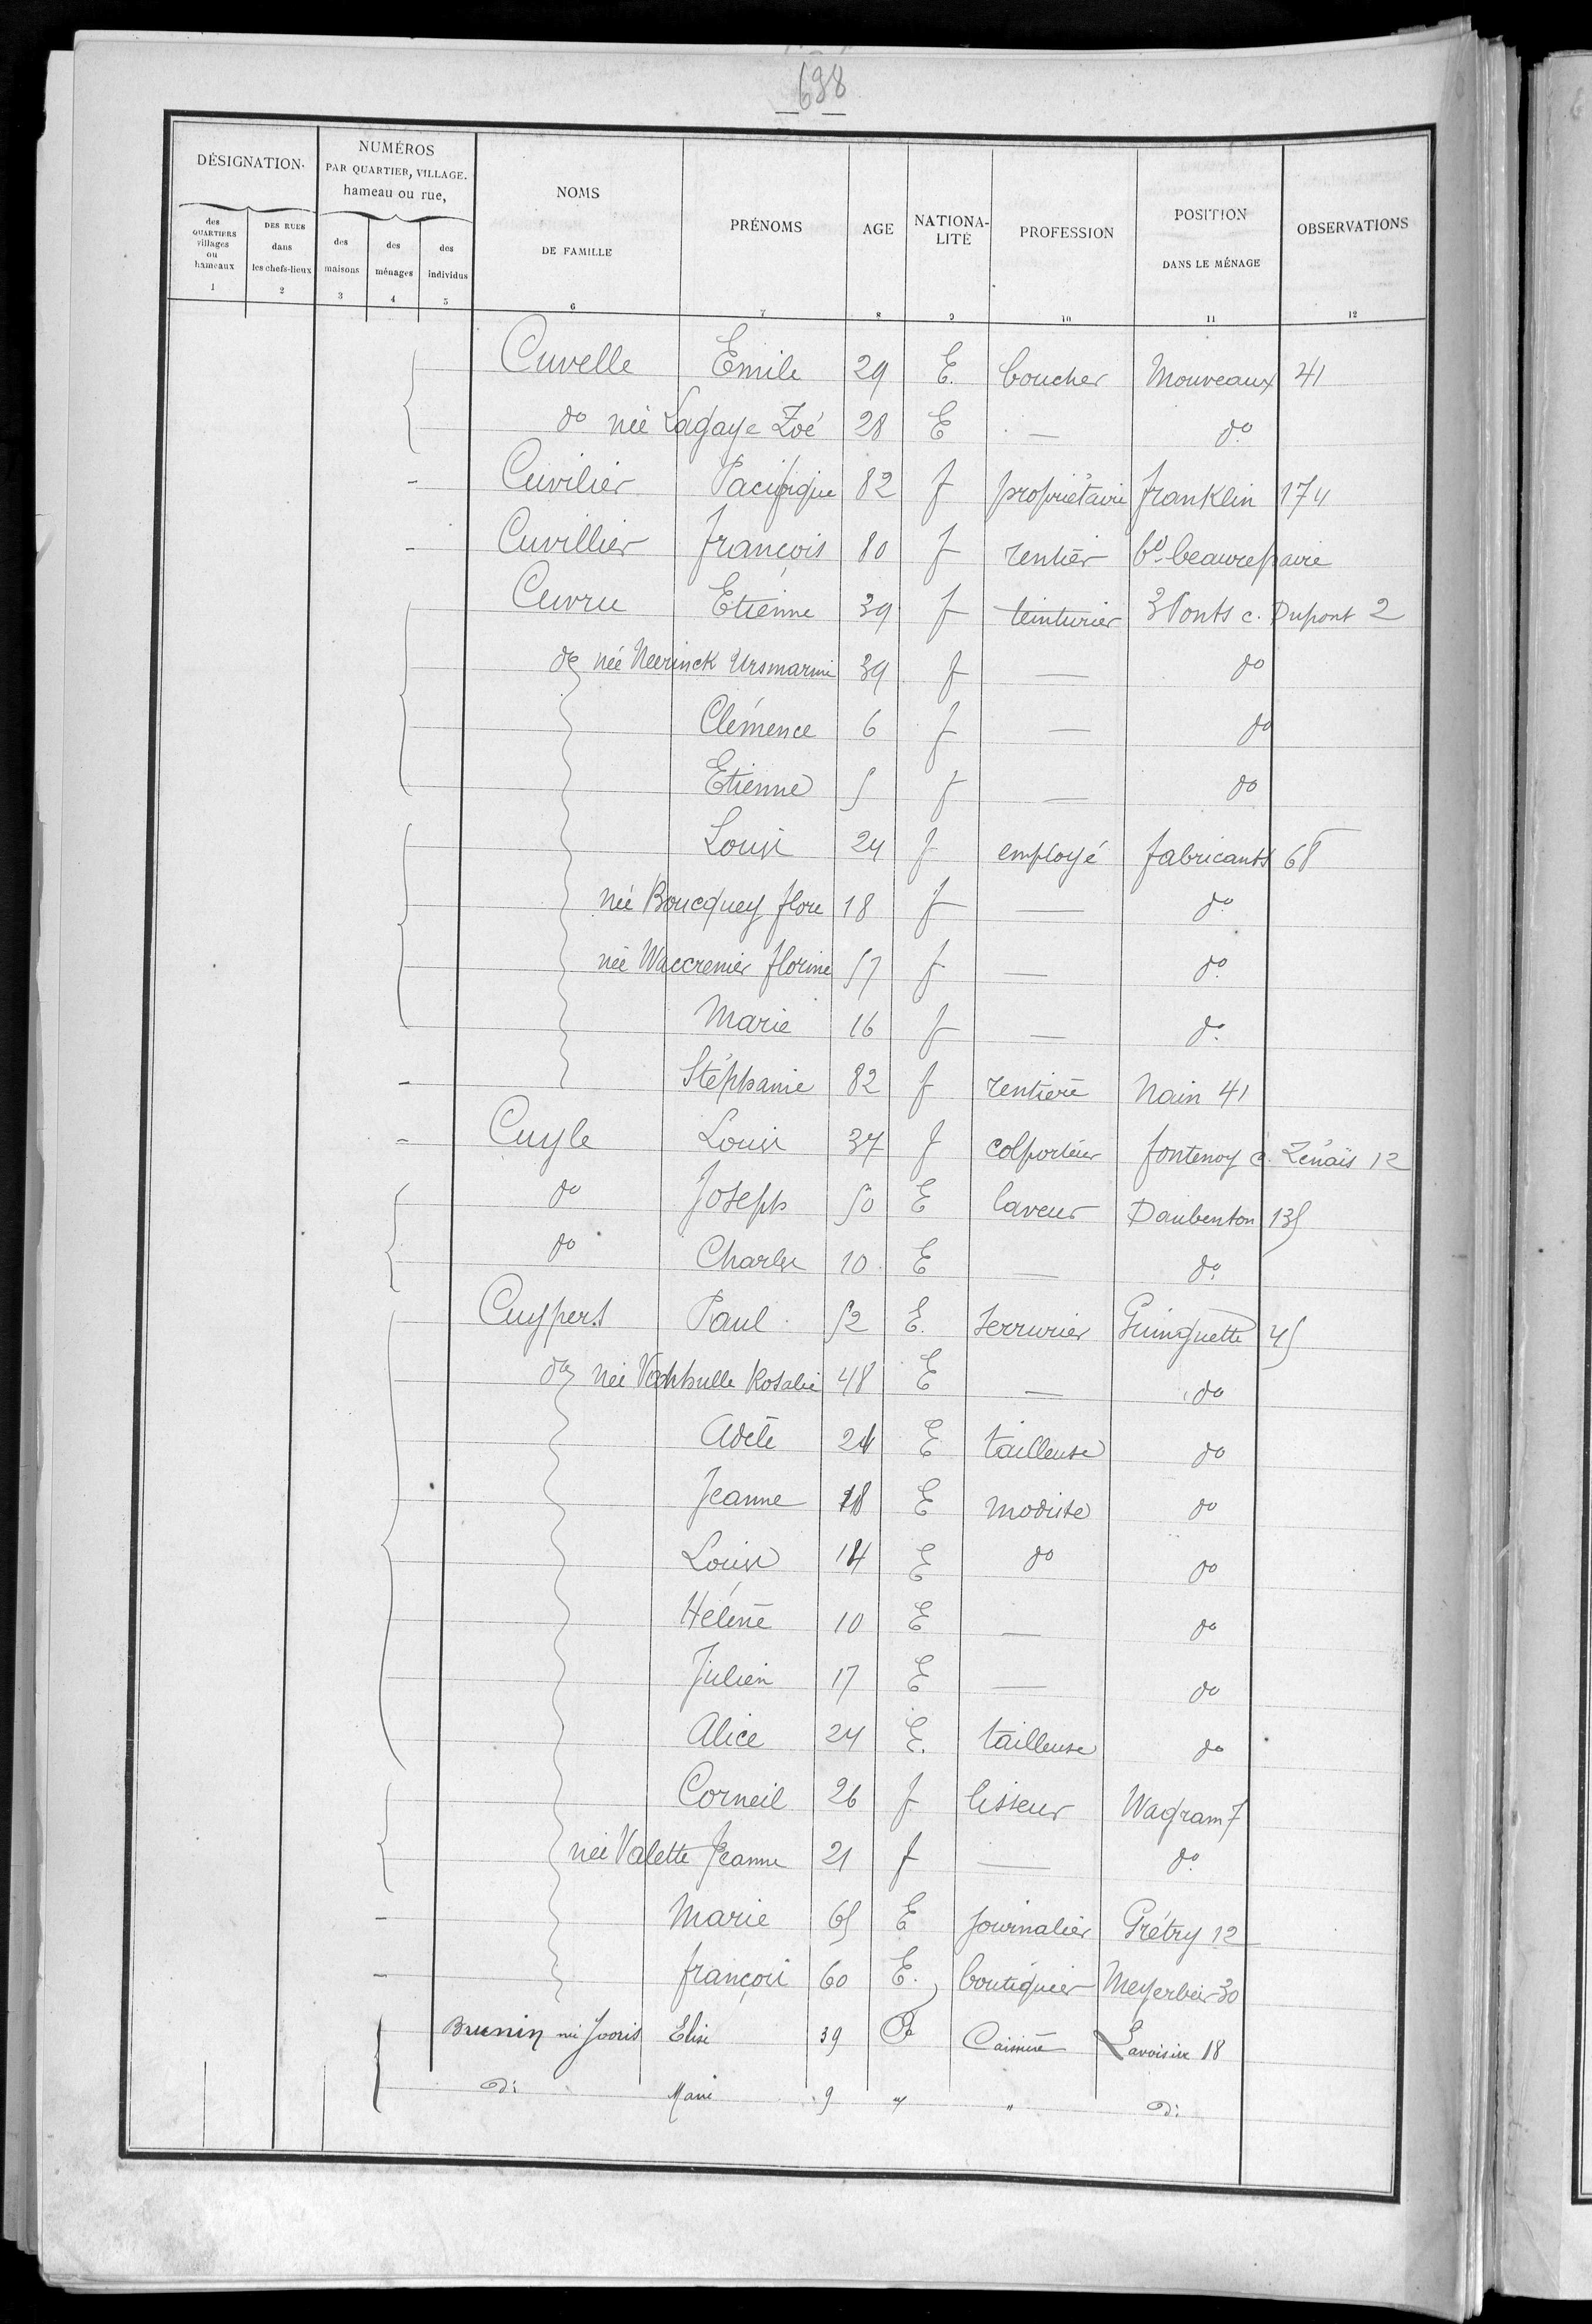 698
DÉSIGNATION.
NUMÉROS
PAR QUARTIER, VILLAGE.
hameau ou rue,
NOMS
DE FAMILLE
PRÉNOMS
AGE
NATIONA-
LITÉ
PROFESSION
POSITION
DANS LE MÉNAGE
OBSERVATIONS
des
QUARTIERS
villages
ou
hameaux
DES RUES
dans
les chefs-lieux
des
maisons
des
ménages
des
individus
1 2 3 4 5 6 7 8 9 10 11 12
Cuvelle Emile 29 E. boucher Mouveaux 41
do née Lagaye Zoé 28 E — do
Cuvilier Pacifique 82 f propriétaire franklin 174
Cuvillier françois 80 f rentier bd beaurepaire
Cuvru Etienne 39 f teinturier 3 Ponts c. Dupont 2
do née Neerinck Ursmarine 39 f — do
Clémence 6 f — do
Etienne 5 f — do
Louis 24 f employé fabricants 68
née Boucquey flore 18 f — do
née Waccrenier florine 57 f — do
Marie 16 f — do
Stéphanie 82 f rentière Nain 41
Cuyle Louis 37 f colporteur fontenoy c. Zénaïs 12
do Joseph 50 E laveur Daubenton 135
do Charles 10 E — do
Cuypers Paul 52 E. serrurier Guinguette 45
do née Vanhulle Rosalie 48 E — do
Adèle 24 E tailleuse do
Jeanne 18 E modiste do
Louise 14 E do do
Hélène 10 E — do
Julien 17 E — do
Alice 24 E. tailleuse do
Corneil 26 f lisseur Wagram 7
née Valette Jeanne 21 f — do
Marie 65 E journalier Grétry 12
françois 60 E. boutiquier Meyerbeer 30
Brunin née Jooris Elise 39 F Caissière Lavoisier 18
do Marie 9 " " do